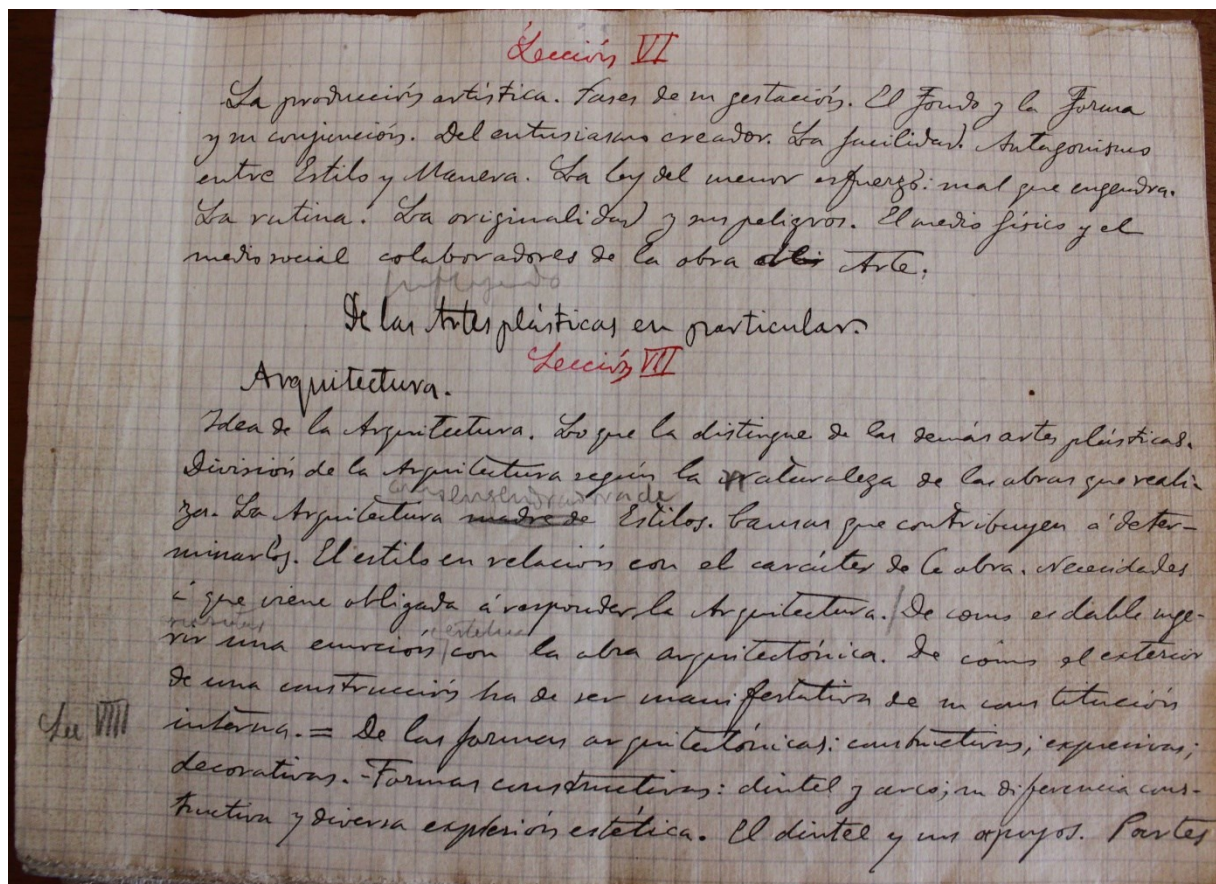 Lección VI
La producción artística. Fases de su gestación. El Fondo y la Forma
y su conjunción. Del entusiasmo creador. La facilidad. Antagonismo
entre Estilo y Manera. La ley del menor esfuerzo: mal que engendra.
La rutina. La originalidad y sus peligros. El medio físico y el
medio social colaboradores de la obra Arte.
De las Artes plásticas en particular.
Lección VII
Arquitectura.
Idea de la Arquitectura. Lo que la distingue de las demás artes plásticas.
División de la Arquitectura según la naturaleza de las obras que reali-
za. La Arquitectura madre de Estilos. Causas que contribuyen á deter-
minarlos. El estilo en relación con el carácter de la obra. Necesidades
á que viene obligada á responder la Arquitectura. / De como es dable suge-
rir una emoción con la obra arquitectónica. De cómo el exterior
de una construcción ha de ser manifestativa de su constitución
Lec VIII
interna. = De las formas arquitectónicas: constructivas; expresivas;
decorativas. - Formas constructivas: dintel y arco; su diferencia cons-
tructiva y diversa expresión estética. El dintel y sus apoyos. Partes